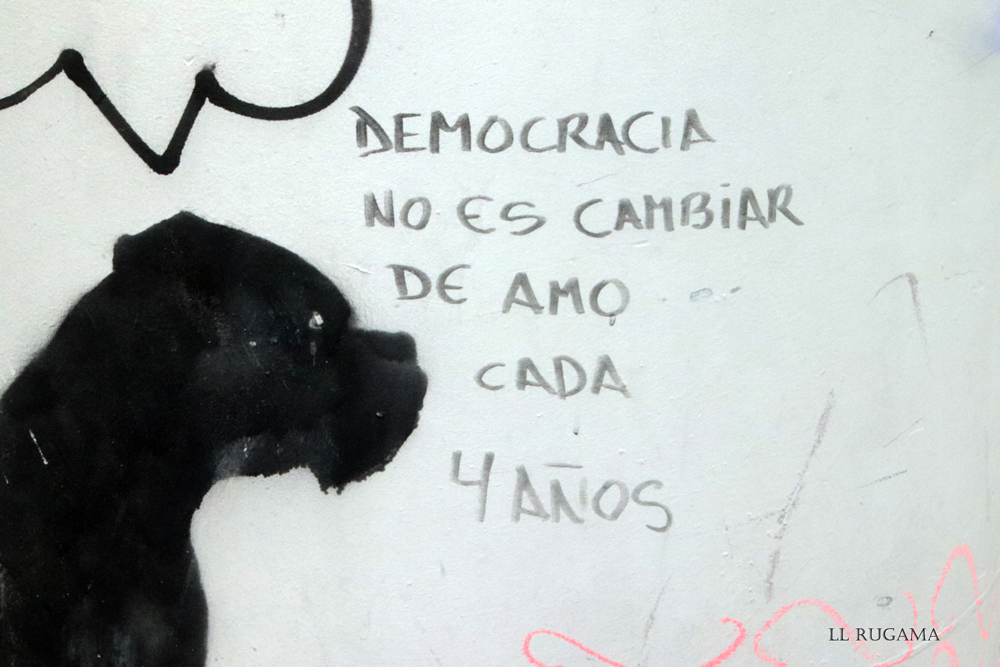 DEMOCRACIA
NO ES CAMBiAR
DE AMO
CADA
4 AÑOS
LL RUGAMA